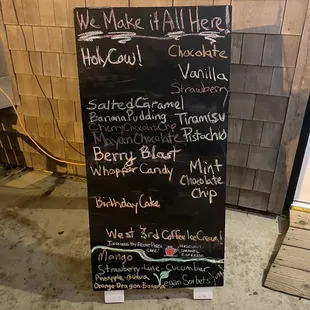 We Make it All Here!
Holy Cow!
Chocolate
Vanilla
Strawberry
Salted Caramel
Banana Pudding
Tiramisu
Cherry Chocolate Chip
Pistachio
Mayan Chocolate
Berry Blast
Whopper Candy
Mint
Chocolate
Chip
Birthday Cake
West 3rd Coffee Ice Cream!
Inspired By
Cafe
Hazelnut
Caramel
Espresso
Mango
Strawberry-Lime-Cucumber
Yum
Pineapple-Guava
Vegan Sorbets
Orange-Dragon-Banana